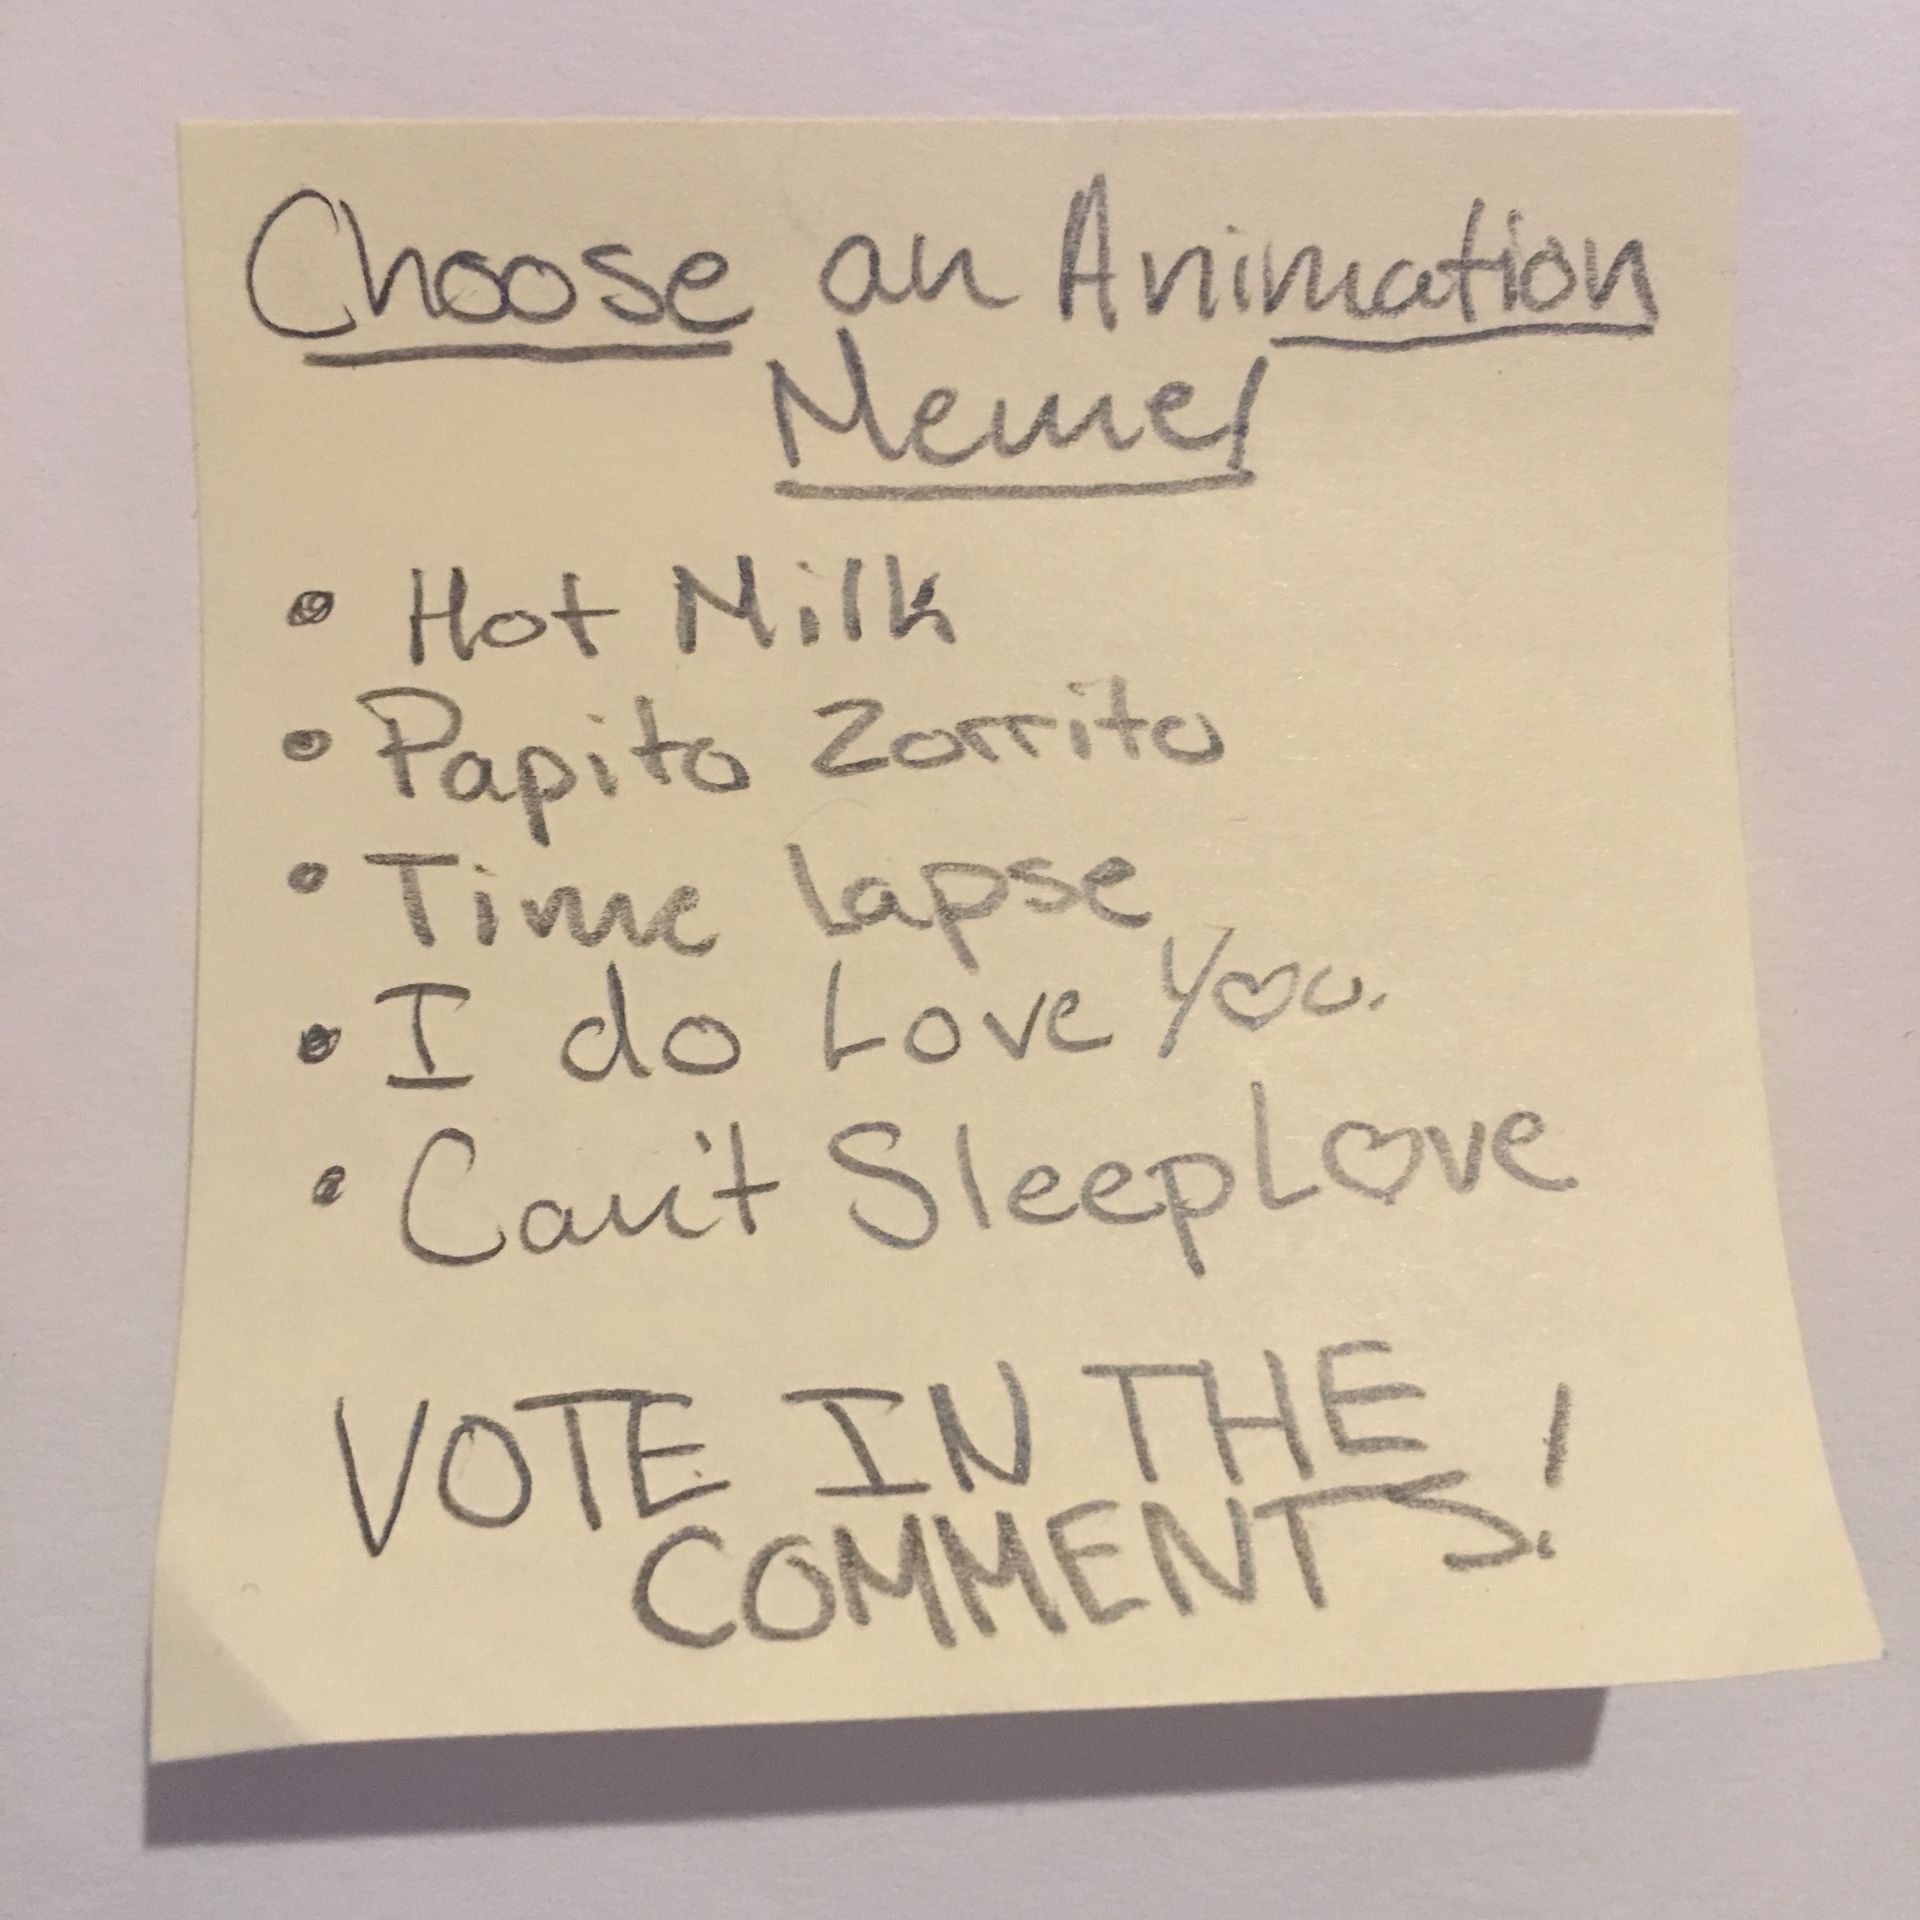 Choose an Animation
Meme!
• Hot Milk
• Papito Zorrito
• Time Lapse
• I do Love You.
• Can't Sleep Love
VOTE IN THE
COMMENTS!